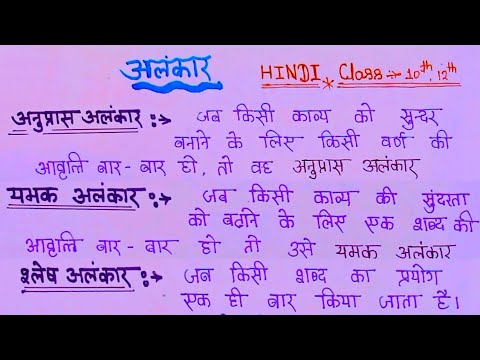 अलंकार
HINDI * Class → 10th, 12th
अनुप्रास अलंकार :→ जब किसी काव्य को सुन्दर
बनाने के लिए किसी वर्ण की
आवृत्ति बार-बार हो, तो वह अनुप्रास अलंकार
यमक अलंकार :→ जब किसी काव्य की सुंदरता
को बढाने के लिए एक शब्द की
आवृत्ति बार-बार हो तो उसे यमक अलंकार
श्लेष अलंकार :→ जब किसी शब्द का प्रयोग
एक ही बार किया जाता है।